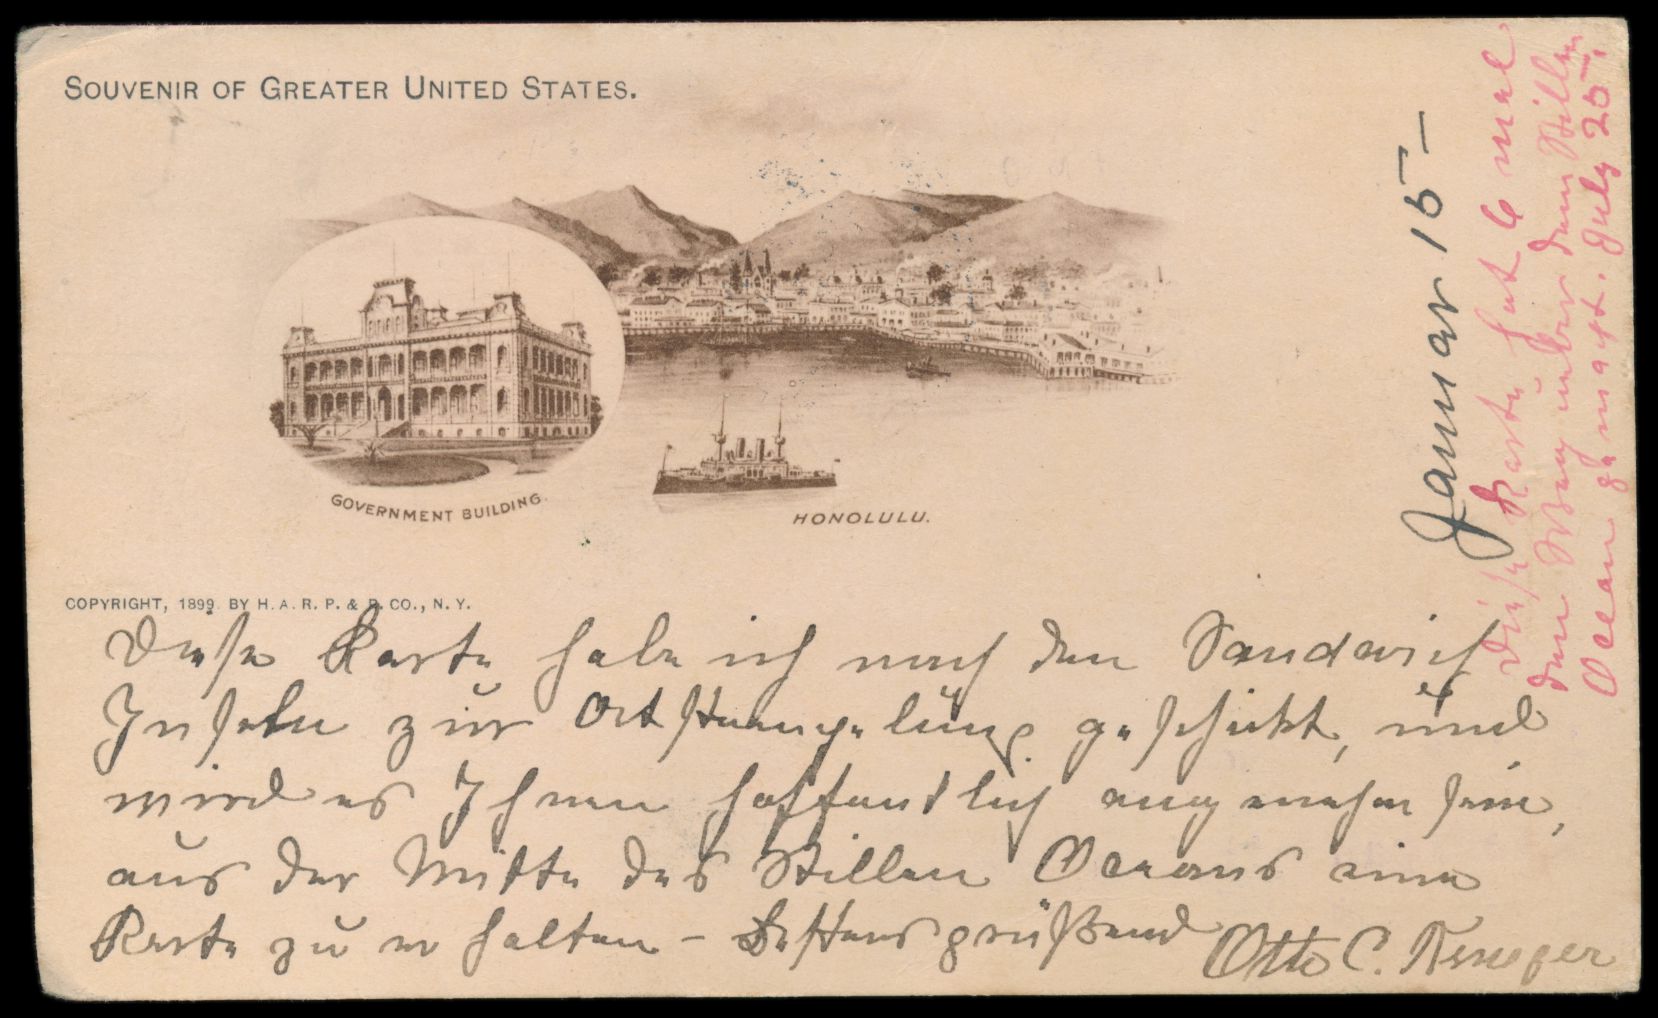 SOUVENIR OF GREATER UNITED STATES.
GOVERNMENT BUILDING.
HONOLULU.
COPYRIGHT, 1899. BY H. A. R. P. & P. CO., N. Y.
Diese Karte habe ich nach den Sandwich
Inseln zur Abstempelung geschickt, und
wird es Ihnen hoffentlich angenehm sein,
aus der Mitte des Stillen Oceans eine
Karte zu erhalten – Bestens grüßend Otto C.
Januar 15 –
Diese Karte hat 6 mal
den Weg über den Stillen
Ocean gemacht. July 25.